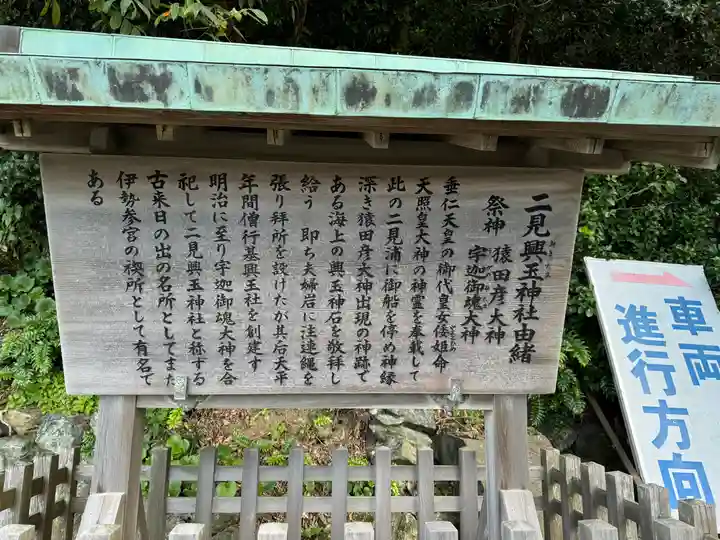 二見興玉神社由緒
祭神 猿田彦大神
宇迦御魂大神
垂仁天皇の御代皇女倭姫命
天照皇大神の神霊を奉載して
此の二見浦に御船を停め神縁
深き猿田彦大神出現の神跡で
ある海上の興玉神石を敬拝し
給う 即ち夫婦岩に注連縄を
張り拝所を設けたが其后天平
年間僧行基興玉社を創建す
明治に至り宇迦御魂大神を合
祀して二見興玉神社と称する
古来日の出の名所としてまた
伊勢参宮の禊所として有名で
ある
車両
進行方向